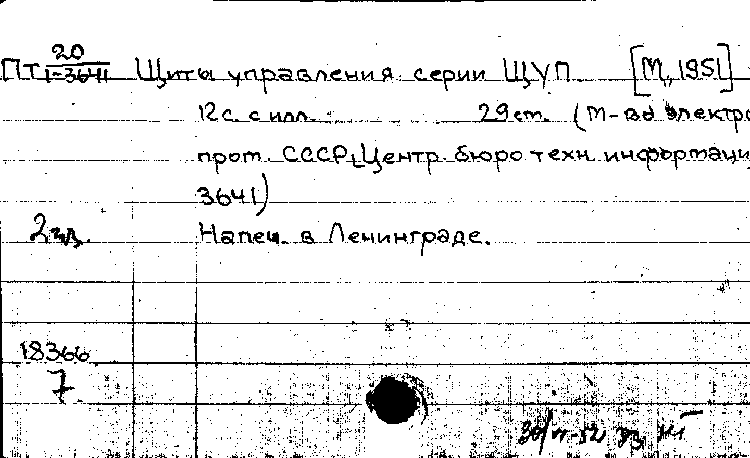 ПТ 20/1-3641 Щиты управления серии ЩУП [М., 1951]
12 с. с илл. 29 см. (М-во электро
пром. СССР, Центр. бюро техн. информаци
3641)
2 экз. Напеч. в Ленинграде.
18366
7